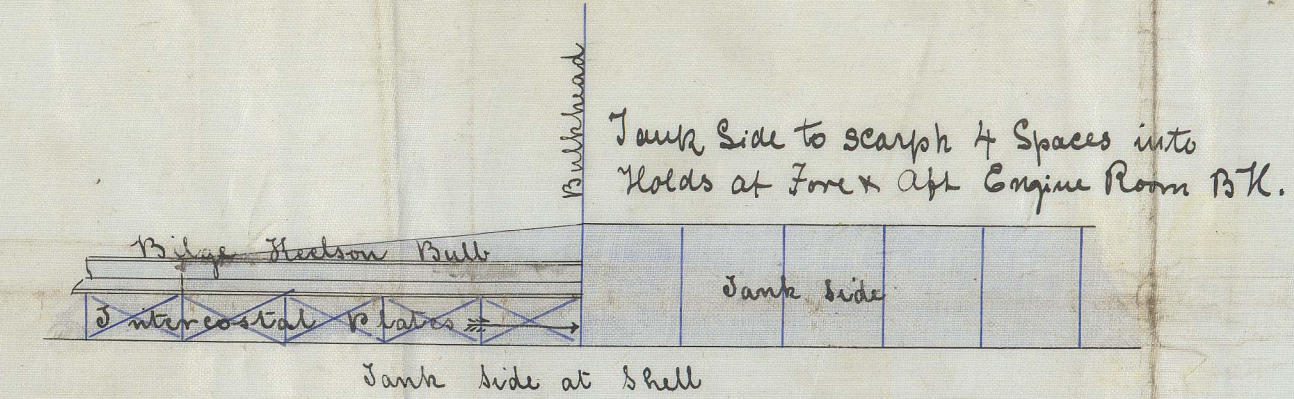 Bulkhead
Tank Side to scarph 4 Spaces into
Holds at Fore & Aft Engine Room BH.
Bilge Keelson Bulb
Tank Side
Intercostal Plates
Tank Side at Shell